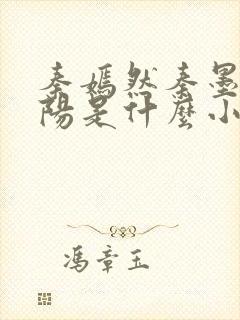 秦嫣然秦墨
陽是什麼小
馮章玉